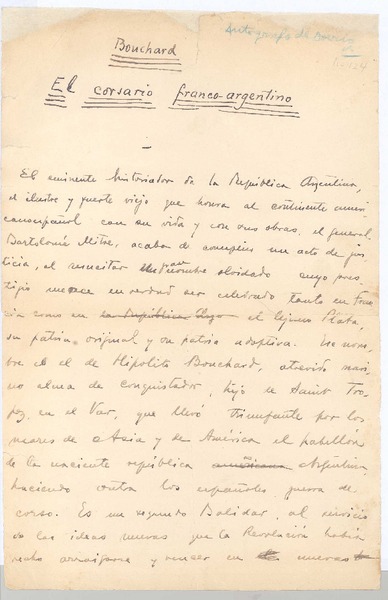 Autógrafo de Darío
Bouchard
El corsario franco-argentino
El eminente historiador de la República Argentina,
el ilustre y fuerte viejo que honra al continente ameri
canoespañol con su vida y con sus obras, el general
Bartolomé Mitre, acaba de cumplir un acto de jus
ticia, al resucitar un nombre olvidado cuyo pres
tigio merece en verdad ser celebrado tanto en Fran
cia como en la República Arge el lejano Plata,
su patria original y su patria adoptiva. Ese nom
bre es el de Hipólito Bouchard, atrevido mari
no, alma de conquistador, hijo de Saint Tro
pez, en el Var, que llevó triunfante por los
mares de Asia y de América el pabellón
de la naciente república americana Argentina,
haciendo contra los españoles guerra de
corso. Es un segundo Bolívar, al servicio
de las ideas nuevas que la Revolución había
hecho arraigarse y vencer en nuevas